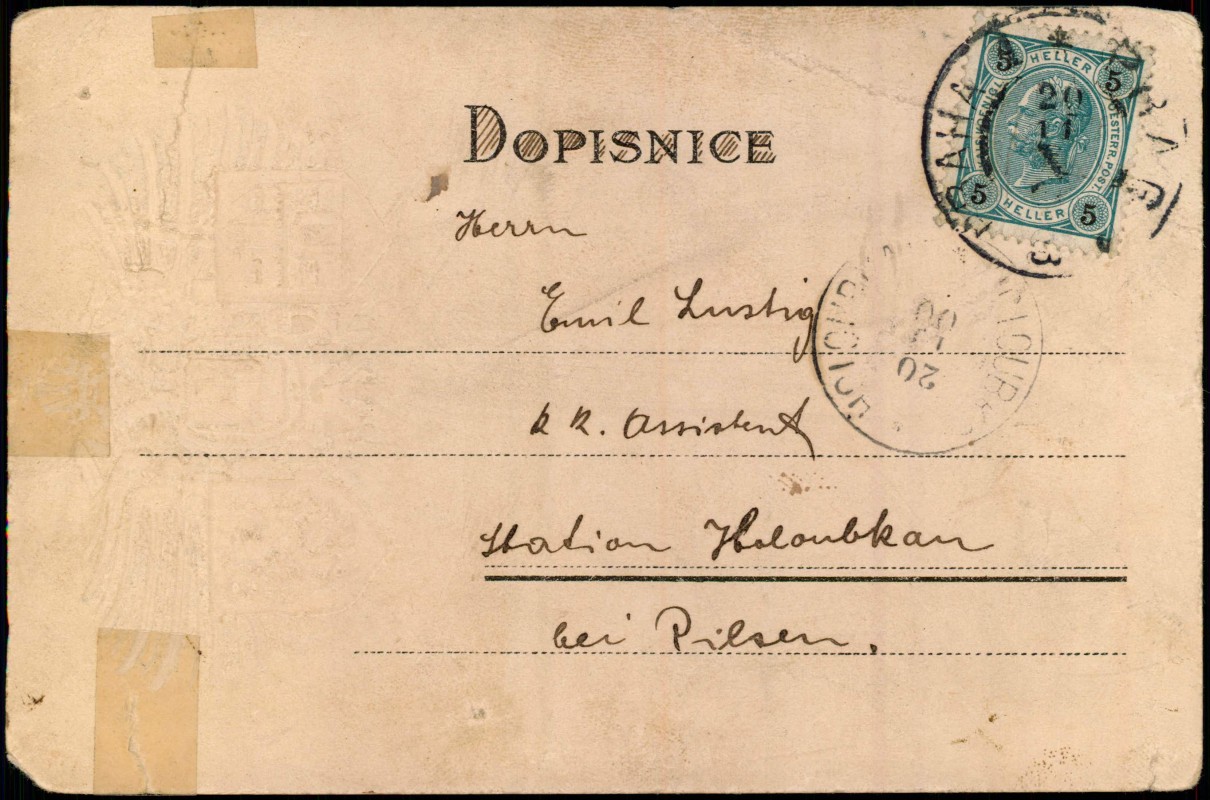 DOPISNICE
5 HELLER 5
OESTERR. POST.
5 HELLER 5
PRAHA PRAG
20
11
3
20
00
Herrn
Emil Lustig
k k. Assistent
Station Holoubkau
bei Pilsen.